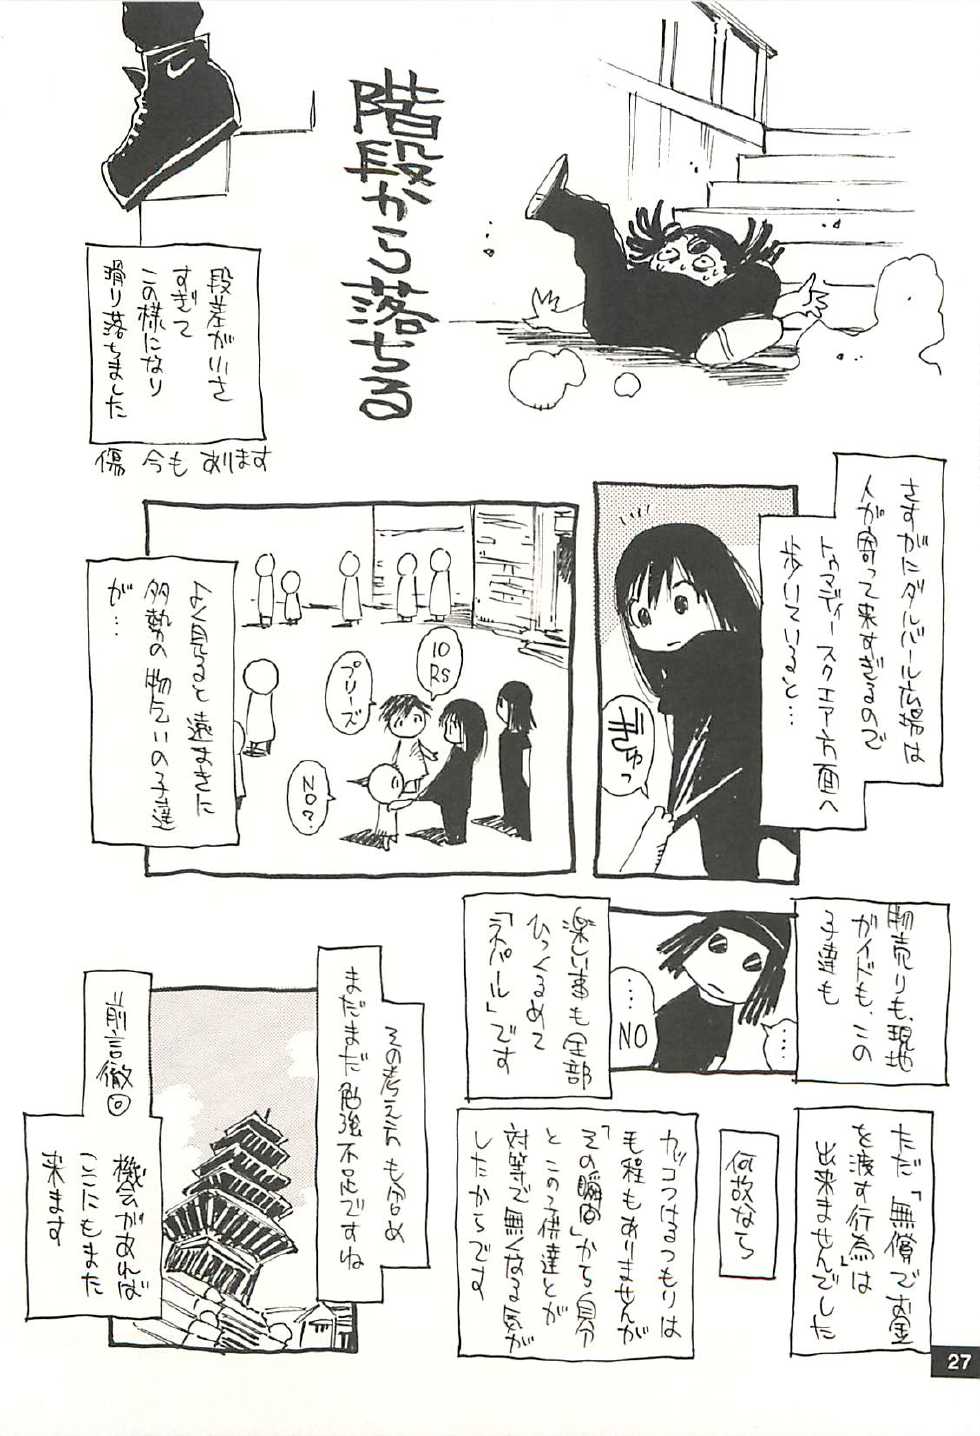 階段から落ちる
段差が小さ
すぎて
この様になり
滑り落ちました
傷 今も あります
さすがにダルバール広場は
人が寄って来すぎるので
トゥマディースクエア方面へ
歩いていると…
ぎゅっ
よく見ると遠まきに
多勢の物乞いの子達
が…
10
RS
プリーズ
NO?
物売りも、現地
ガイドも、この
子達も
…
…NO
楽しい事も全部
ひっくるめて
「ネパール」です
ただ「無償でお金
を渡す行為」は
出来ませんでした
何故なら
カッコつけるつもりは
毛程もありませんが
「その瞬間」から自分
とこの子供達とが
対等で無くなる気が
したからです
その考え方も含め
まだまだ勉強不足ですね
前言撤回
機会があれば
ここにもまた
来ます
27